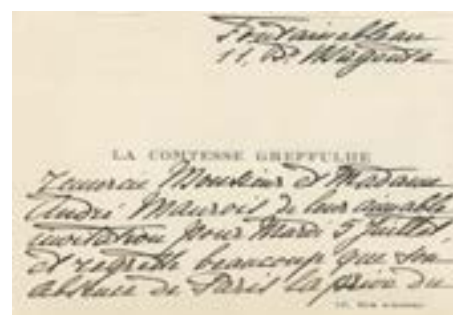 Fontainebleau
11, Bd Magenta
LA COMTESSE GREFFULHE
remercie Monsieur et Madame
André Maurois de leur aimable
invitation pour Mardi 5 Juillet
et regrette beaucoup que son
absence de Paris la prive du